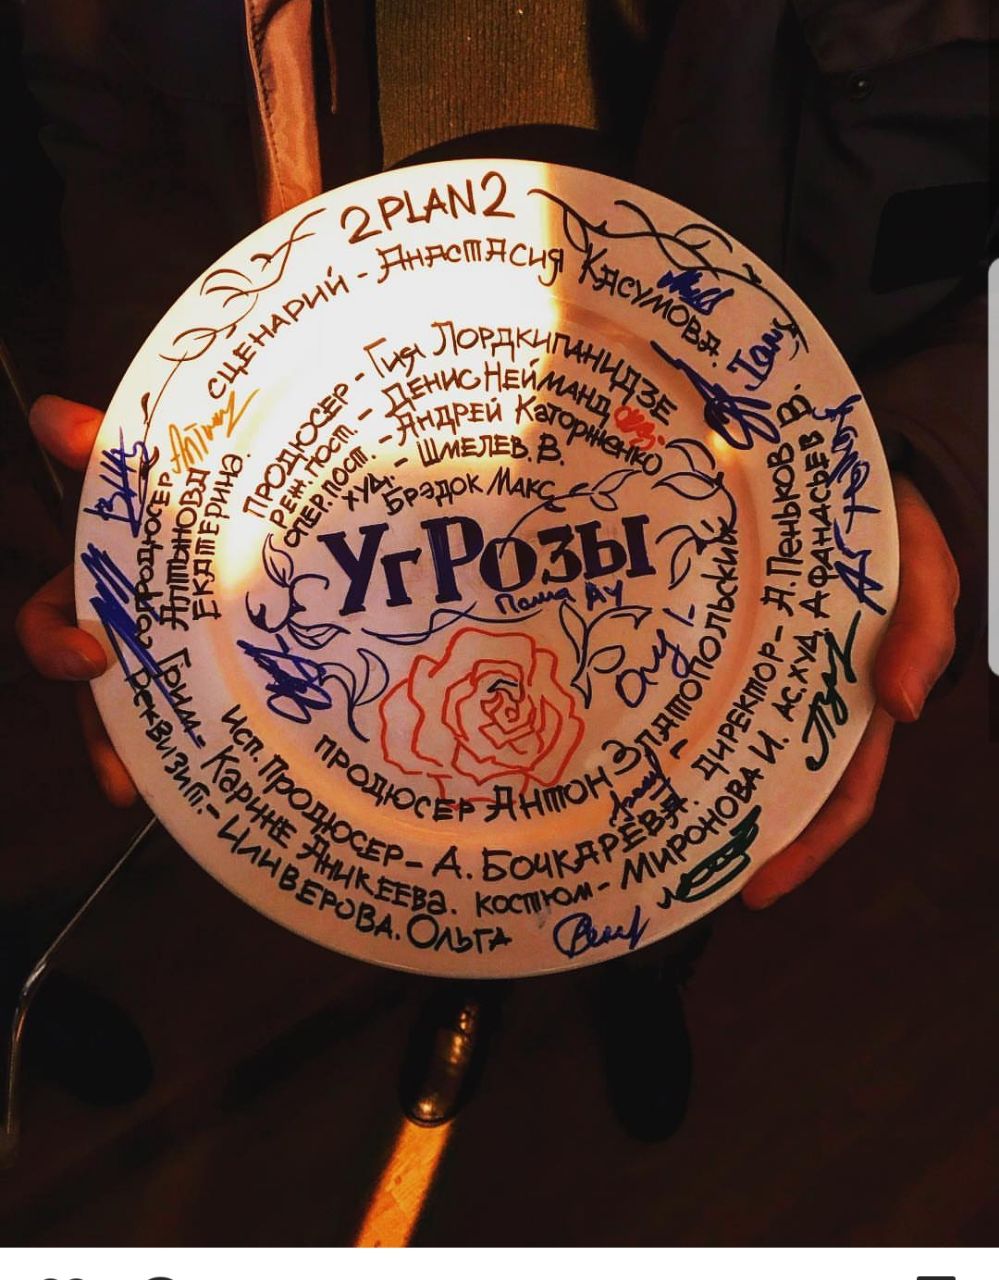 2PLAN2
СЦЕНАРИЙ - АНАСТАСИЯ КАСУМОВА.
ПРОДЮСЕР - Гия ЛОРДКИПАНИДЗЕ
РЕЖ. ПОСТ. - ДЕНИС НЕЙМАНД
ОПЕР. ПОСТ. - АНДРЕЙ КАТОРЖЕНКО
ХУД. - ШМЕЛЕВ. В.
БРЭДОК МАКС
УгРозы
Паша АУ
ПРОДЮСЕР АНТОН ЗЛАТОПОЛЬСКИЙ
СОПРОДЮСЕР
АНТОНОВА
ЕКАТЕРИНА.
ИСП. ПРОДЮСЕР - А. БОЧКАРЁВА.
ДИРЕКТОР - А. ПЕНЬКОВ В.
ГРИМ - КАРИНЕ АНИКЕЕВА.
КОСТЮМ - МИРОНОВА И.
АС. ХУД. АФАНАСЬЕВ
РЕКВИЗИТ. - ЦИНВЕРОВА. ОЛЬГА